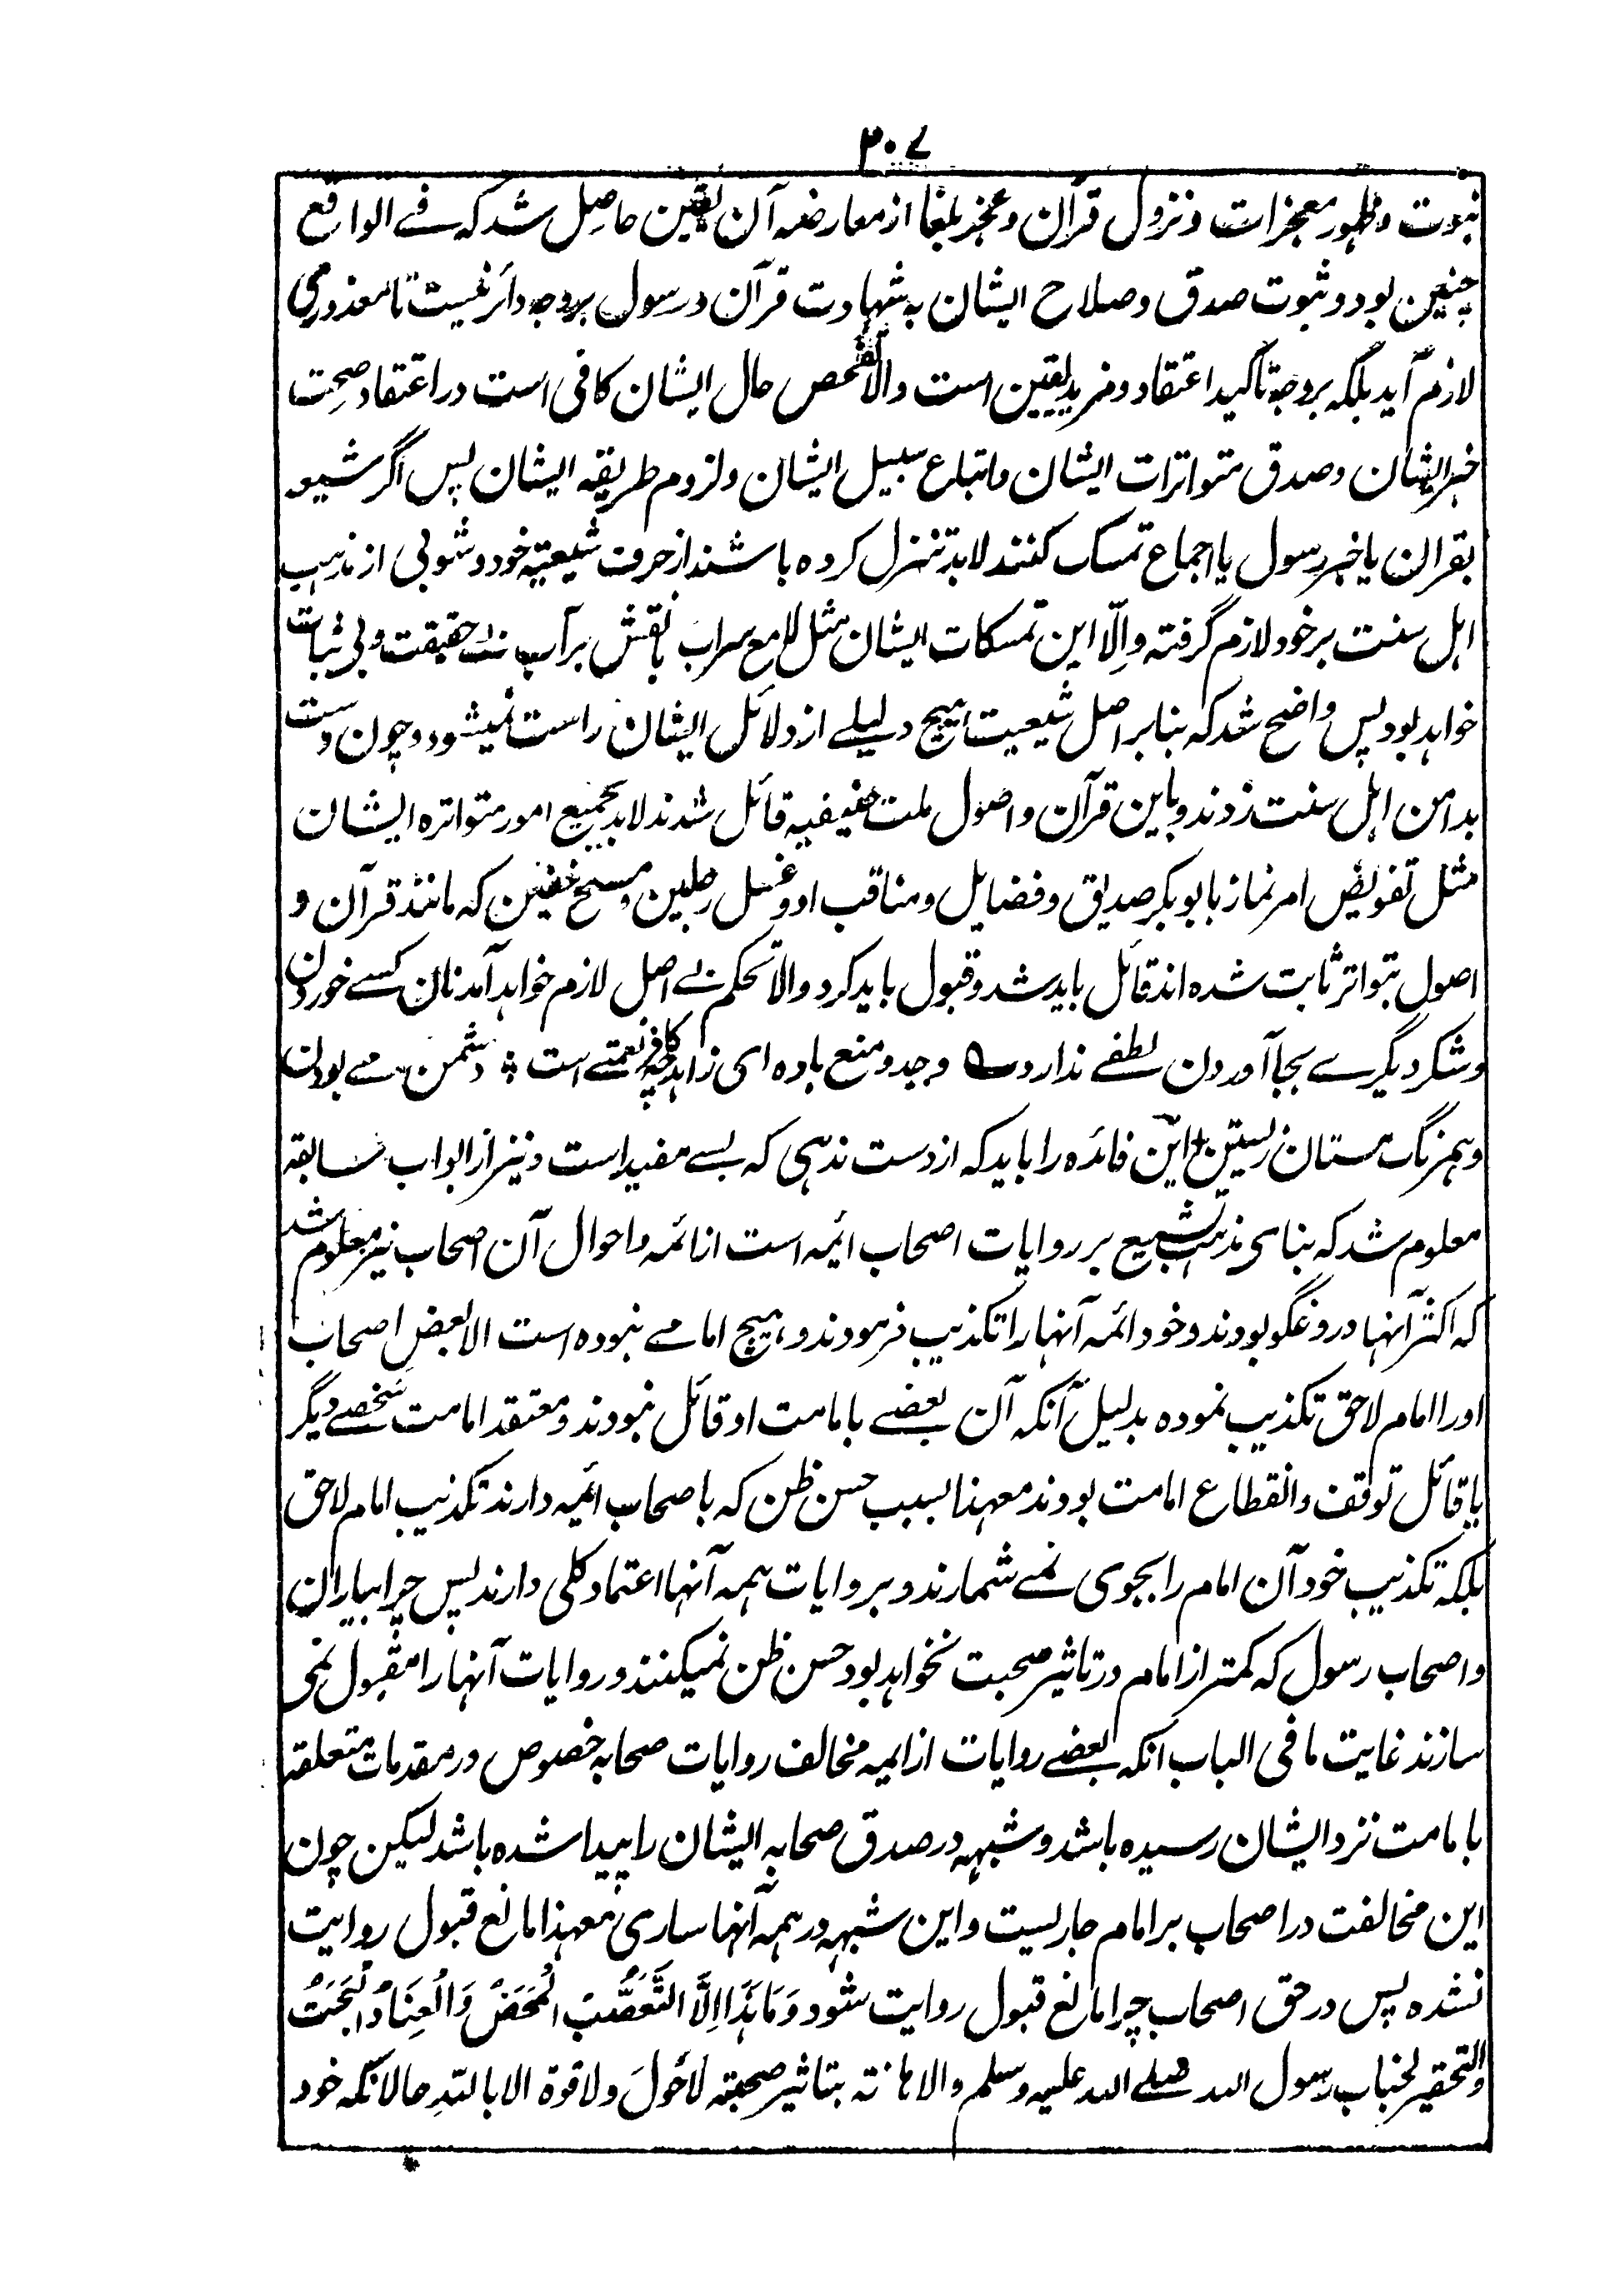 ۳۰۷
نبوت وظهور معجزات ونزول قرآن وعجز بلغا از معارضه آن یقین حاصل شد که فے الواقع
چنین بود وثبوت صدق وصلاح ایشان به شهادت قرآن ورسول بروجه دائر نیست تا محذوری
لازم آید بلکه بروجه تاکید اعتقاد ومزید یقین است والا تفحص حال ایشان کافی است در اعتقاد صحت
خبر ایشان وصدق متواترات ایشان واتباع سبیل ایشان ولزوم طریقه ایشان پس اگر شیعه
بقران یا خبر رسول یا اجماع تمسک کنند لابد تنزل کرده باشند از حرفت شیعیته خود وشوبی از مذهب
اهل سنت بر خود لازم گرفته وإلّا این تمسکات ایشان مثل لامع سراب یا نقش بر آب بے حقیقت وبی ثبات
خواهد بود پس واضح شد که بنا بر اصل شیعیت هیچ دلیلے از دلائل ایشان راست نمیشود وچون دست
بدامن اهل سنت زدند وباین قرآن واصول ملت حنیفیه قائل شدند لابد بجمیع امور متواتره ایشان
مثل تفویض امر نماز بابوبکر صدیق وفضایل ومناقب او وغسل رجلین ومسح خفین که مانند قرآن و
اصول بتواتر ثابت شده اند قائل باید شد وقبول باید کرد والا تحکم بے اصل لازم خواهد آمد نان کسے خوردن
وشکر دیگرے بجا آوردن لطفے ندارد ؎ وجد ومنع باده ای زاهد چه کافر نعمتے است ؛ دشمن مے بودن
وهمرنگ مستان زیستن ؛ این فائده را باید که از دست ندهی که بسے مفید است ونیز از ابواب سابقه
معلوم شد که بنای مذهب تشیع بر روایات اصحاب ائمه است از ائمه واحوال آن اصحاب نیز معلوم شد
که اکثر آنها دروغگو بودند وخود ائمه آنها را تکذیب فرمودند وهیچ امامے نبوده است الا بعض اصحاب
او را امام لاحق تکذیب نموده بدلیل آنکه آن بعضے بامامت او قائل نبودند ومعتقد امامت شخصے دیگر
یا قائل توقف وانقطاع امامت بودند معهذا بسبب حسن ظن که باصحاب ائمه دارند تکذیب امام لاحق
بلکه تکذیب خود آن امام را بجوی نمے شمارند وبر روایات همه آنها اعتماد کلی دارند پس چرا بیاران
واصحاب رسول که کمتر از امام در تاثیر صحبت نخواهد بود حسن ظن نمیکنند وروایات آنها را مقبول نمی
سازند غایت ما فی الباب انکه بعضے روایات از ایمه مخالف روایات صحابه خصوص در مقدمات متعلقه
بامامت نزد ایشان رسیده باشد وشبهه در صدق صحابه ایشان را پیدا شده باشد لیکن چون
این مخالفت در اصحاب هر امام جاریست واین شبهه در همه آنها ساری معهذا مانع قبول روایت
نشده پس در حق اصحاب چرا مانع قبول روایت شود وَمَا هٰذَا إِلَّا التَّعَصُّبُ الْمَحْضُ وَالْعِنَادُ الْبَحْتُ
والتحقیر لجناب رسول الله صلے الله علیه وسلم والاهانته بتاثیر صحبته لاحَولَ ولا قوة الا باللهِ حالانکه خود